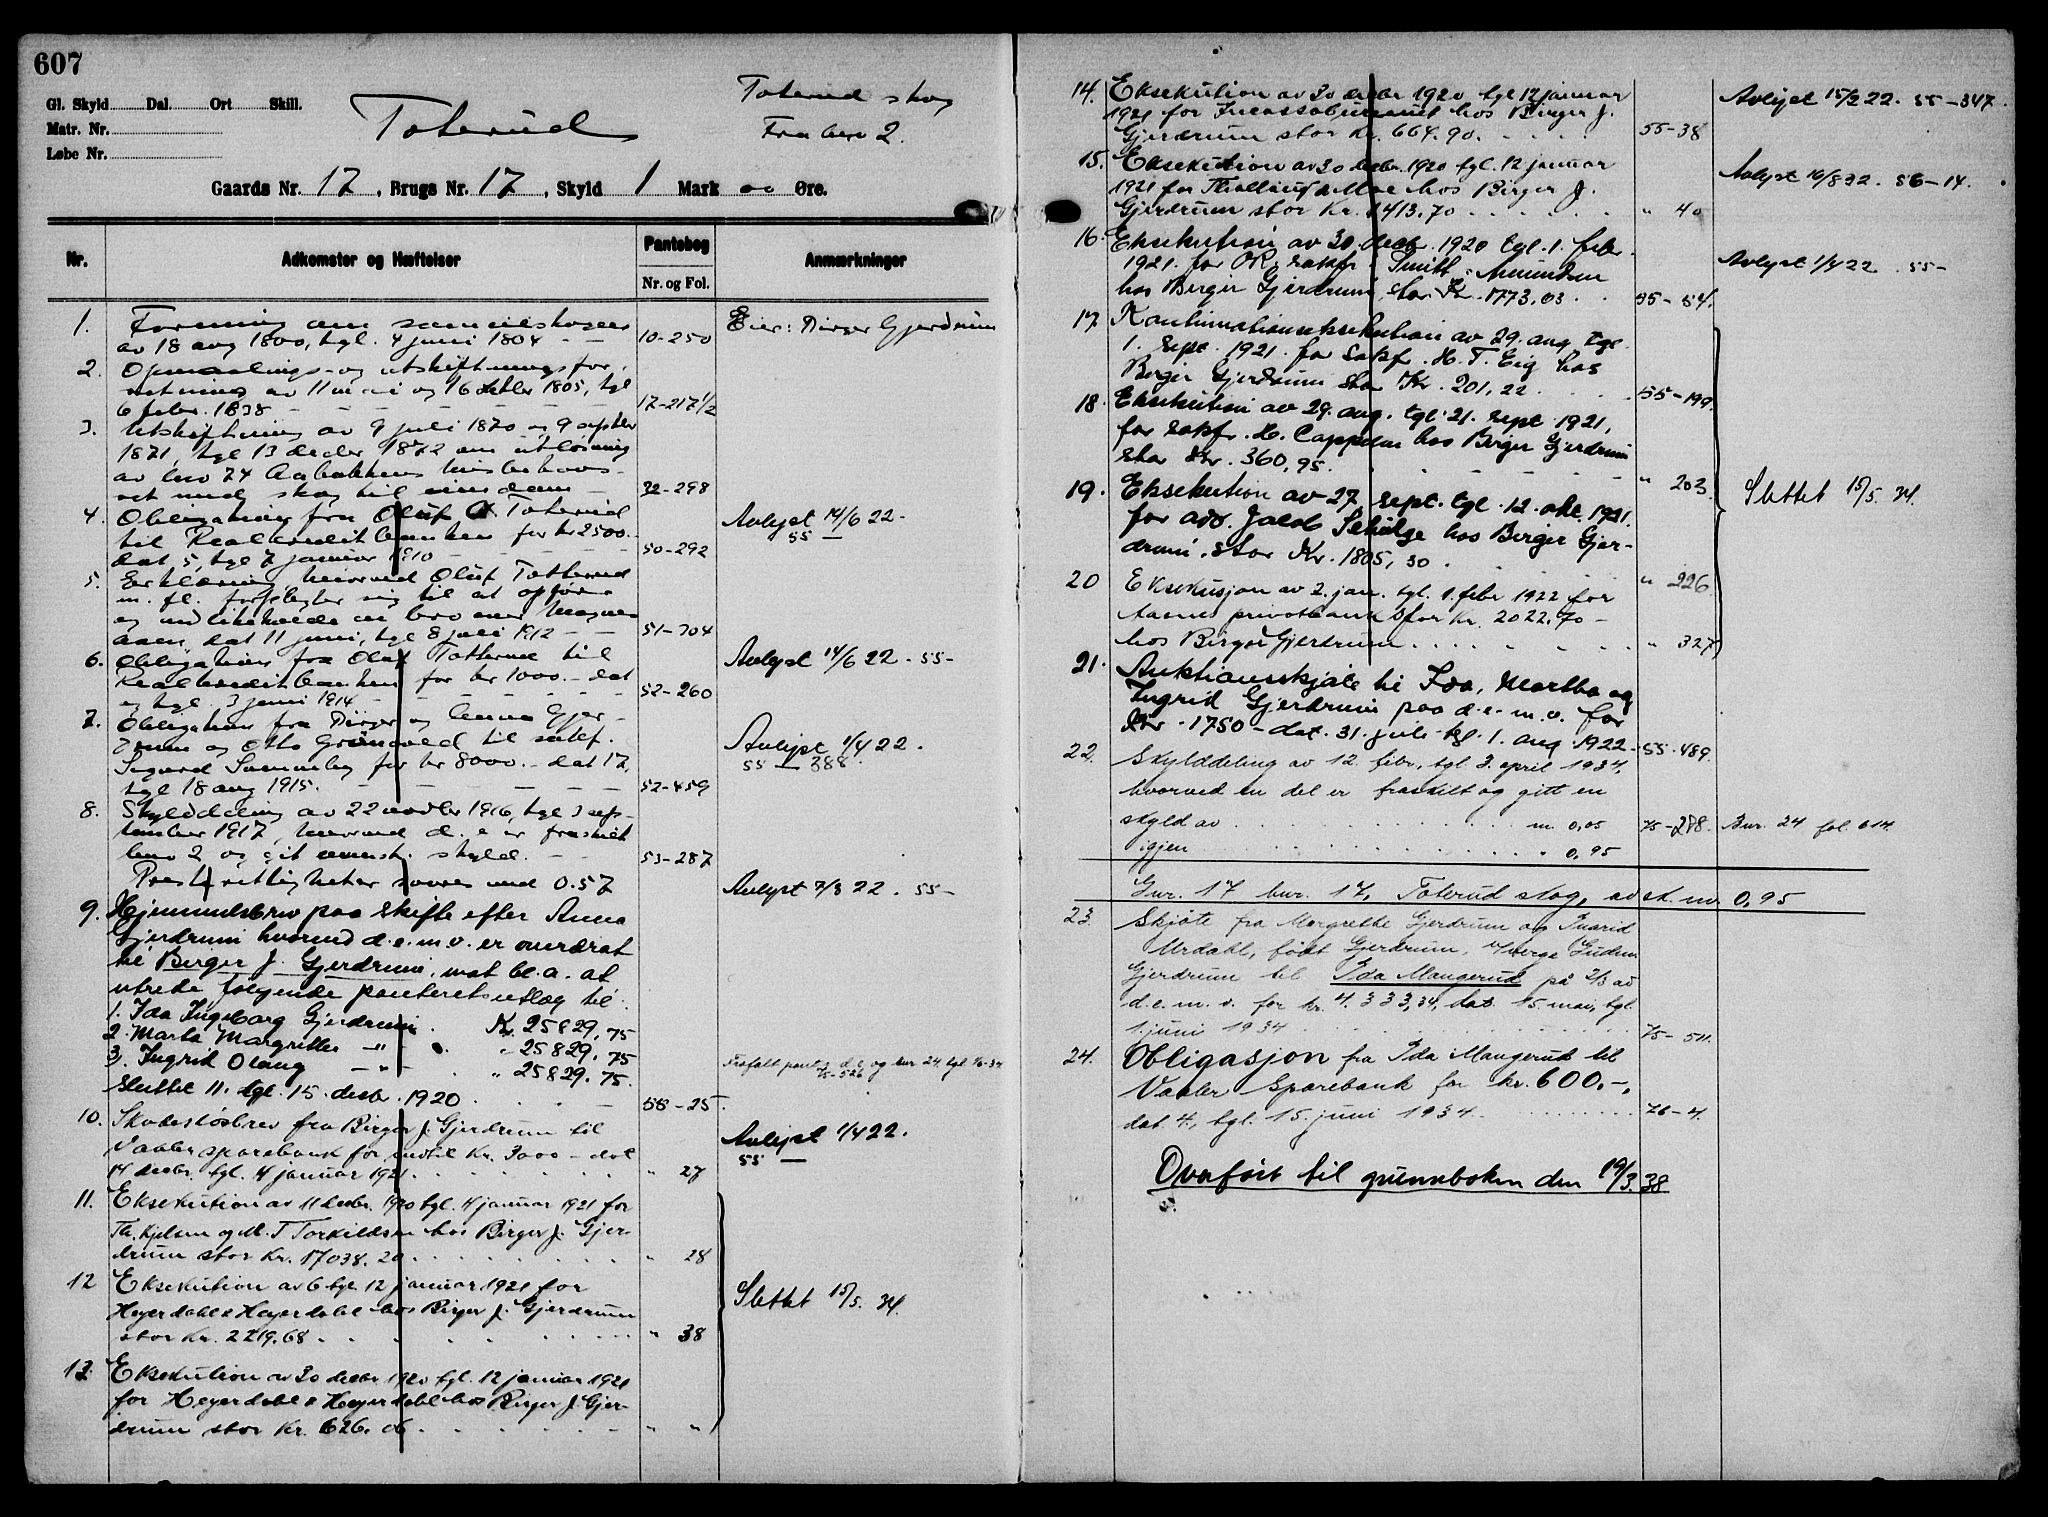 607
Gl. Skyld Dal. Ort Skill.
Matr. Nr.
Løbe Nr.
Toterud
Toterud skog
Fra brno 2.
Gaards Nr. 17, Brugs Nr. 17, Skyld 1 Mark 00 Øre.
Nr. Adkomster og Hæftelser Pantebog Nr. og Fol. Anmærkninger
1. Forening om sameieskogen
av 18 aug 1800, tgl. 4 juni 1804 - - 10-250 Eier: Birger Gjerdrum
2. Opmaalings- og utskiftningsfor-
retning av 11 mai og 16 oktbr 1805, tgl
6 febr. 1838 - - - - 17-217½
3. Utskiftning av 9 juli 1870 og 9 septbr
1871, tgl 13 decbr 1872 om utløsning
av bno 24 Aabakkens
skog til eiendom - 32-298
4. Obligation fra Oluf A. Toterud
til Realkreditbanken for kr 2500.-
dat 5, tgl 7 januar 1910 - - - 50-292 Avlyst 14/6 22 - 55 -
5. Erklæring hvorved Oluf Totterud
m. fl. forpligter sig til at opføre
og vedlikeholde en bro over
aaen, dat 11 juni, tgl 8 juli 1912 - - 51-704
6. Obligation fra Oluf Totterud til
Realkreditbanken for kr 1000.- dat
og tgl. 3 juni 1914 - - 52-260 Avlyst 14/6 22 - 55-
7. Obligation fra Birger og Anna Gjer-
drum og Otto Grønvold til sakf.
Sigurd for kr 8000.- dat 17,
tgl 18 aug 1915. - - - - 52-459 Avlyst 1/4 22. 55 - 388.
8. Skylddeling av 22 novbr 1916, tgl 3 sep-
tember 1917, hvorved d. e er fraskilt
bno 2 og git særsk. skyld. - - 53-287
Prestrettigheter svares med 0.57 Avlyst 7/3 22. 55-
9. Hjemmelsbrev paa skifte efter Anna
Gjerdrum hvorved d.e.m.v. er overdrat
til Berger J. Gjerdrum, mot bl.a. at
utrede følgende panteretsutlæg til:
1. Ida Ingeborg Gjerdrum. Kr. 25829,75
2. Marta Margrethe -"- . " 25829.75
3. Ingrid Olaug -"- . " 25829.75. Frafalt pant i d.e. og bnr 24. tgl 1/6-34 75-526
sluttet 11. tgl. 15. desbr. 1920 . . - 55-25.
10. Skadesløsbrev fra Birger J. Gjerdrum til
Vaaler sparebank for indtil Kr. 3000 - dat
14 decbr. tgl. 4 januar 1921. . . . . " 27 Avlyst 1/4 22. 55 -
11. Eksekution av 11 decbr. 1920 tgl. 4 januar 1921 for
Th. Kjelsen og M. T Torkildsen hos Birger J. Gjer-
drum stor Kr. 17038. 20. . . . . . " 28
12 Eksekution av 6 tgl. 12 januar 1921 for
Heyerdahl & Heyerdahl hos Birger J. Gjerdrum
stor Kr. 2219.68. . . . . . " 38 Slettet 15/5. 34.
13. Eksekution av 30 decbr. 1920 tgl. 12 januar 1921
for Heyerdahl & Heyerdahl hos Birger J. Gjer-
drum stor Kr. 626.06. . . . . - " "
14. Eksekution av 30 decbr 1920 tgl 12 januar
1921 for Incassobureauet hos Birger J.
Gjerdrum stor Kr. 664.90. - . . . 55-38 Avlyst 15/2 22. 55-347.
15. Eksekution av 30 decbr. 1920 tgl. 12 januar
1921 for & Moe hos Birger J.
Gjerdrum stor Kr. 1413.70. . . . . " 40 Avlyst 16/8 22. 56-14.
16. Eksekution av 30. decbr. 1920 tgl. 1. febr.
1921. for OR. sakfr. Smitt - Amundsen
hos Berger Gjerdrum, stor Kr. 1773.03. . 55-54. Avlyst 1/4 22. 55-
17 Kontinuationseksekution av 29. aug tgl.
1. sept. 1921. for sakfr. H. T. Eig hos
Berger Gjerdrum stor Kr. 201,22. . . . 55-199.
18. Eksekution av 29. aug. tgl. 21. sept 1921,
for sakfr. H. Cappelen hos Berger Gjerdrum
stor Kr. 360,95. . . . . - " 203.
19. Eksekution av 27. sept. tgl. 12. okt. 1921. Slettet 15/5. 34.
for adv. Jacob hos Berger Gjer-
drum. stor Kr. 1805,30. . . . . " 226
20 Eksekusjon av 2. jan. tgl. 1. febr 1922 for
Aasnes privatbank stor Kr. 2022.70 -
hos Birger Gjerdrum. . . . . . " 327
21. Auktionsskjøte til Ida, Martha og
Ingrid Gjerdrum paa d.e.m.v. for
Kr. 1750 - dat. 31. juli tgl. 1. aug. 1922 - 55-489.
22. Skylddeling av 12. febr., tgl. 3. april 1934,
hvorved en del er fraskilt og gitt en
skyld av . . . . . . m. 0,05 75-288. Bnr. 24 fol. 614.
igjen . . . . . . " 0,95
Gnr. 17 bnr. 17, Toterud skog, av sk. m. 0,95
23. Skjøte fra Margrethe Gjerdrum og Ingrid
Urdahl, født Gjerdrum, verge Gudrun
Gjerdrum til Ida Maugerud på 2/3 av
d.e.m.v. for kr. 4.333,34, dat. 15. mai, tgl.
1. juni 1934 . . . . . . 75-511.
24. Obligasjon fra Ida Maugerud til
Vaaler Sparebank for kr. 600.-,
dat. 4., tgl. 15. juni 1934. . . . . . 76-4.
Overført til grunnboken den 19/3. 38